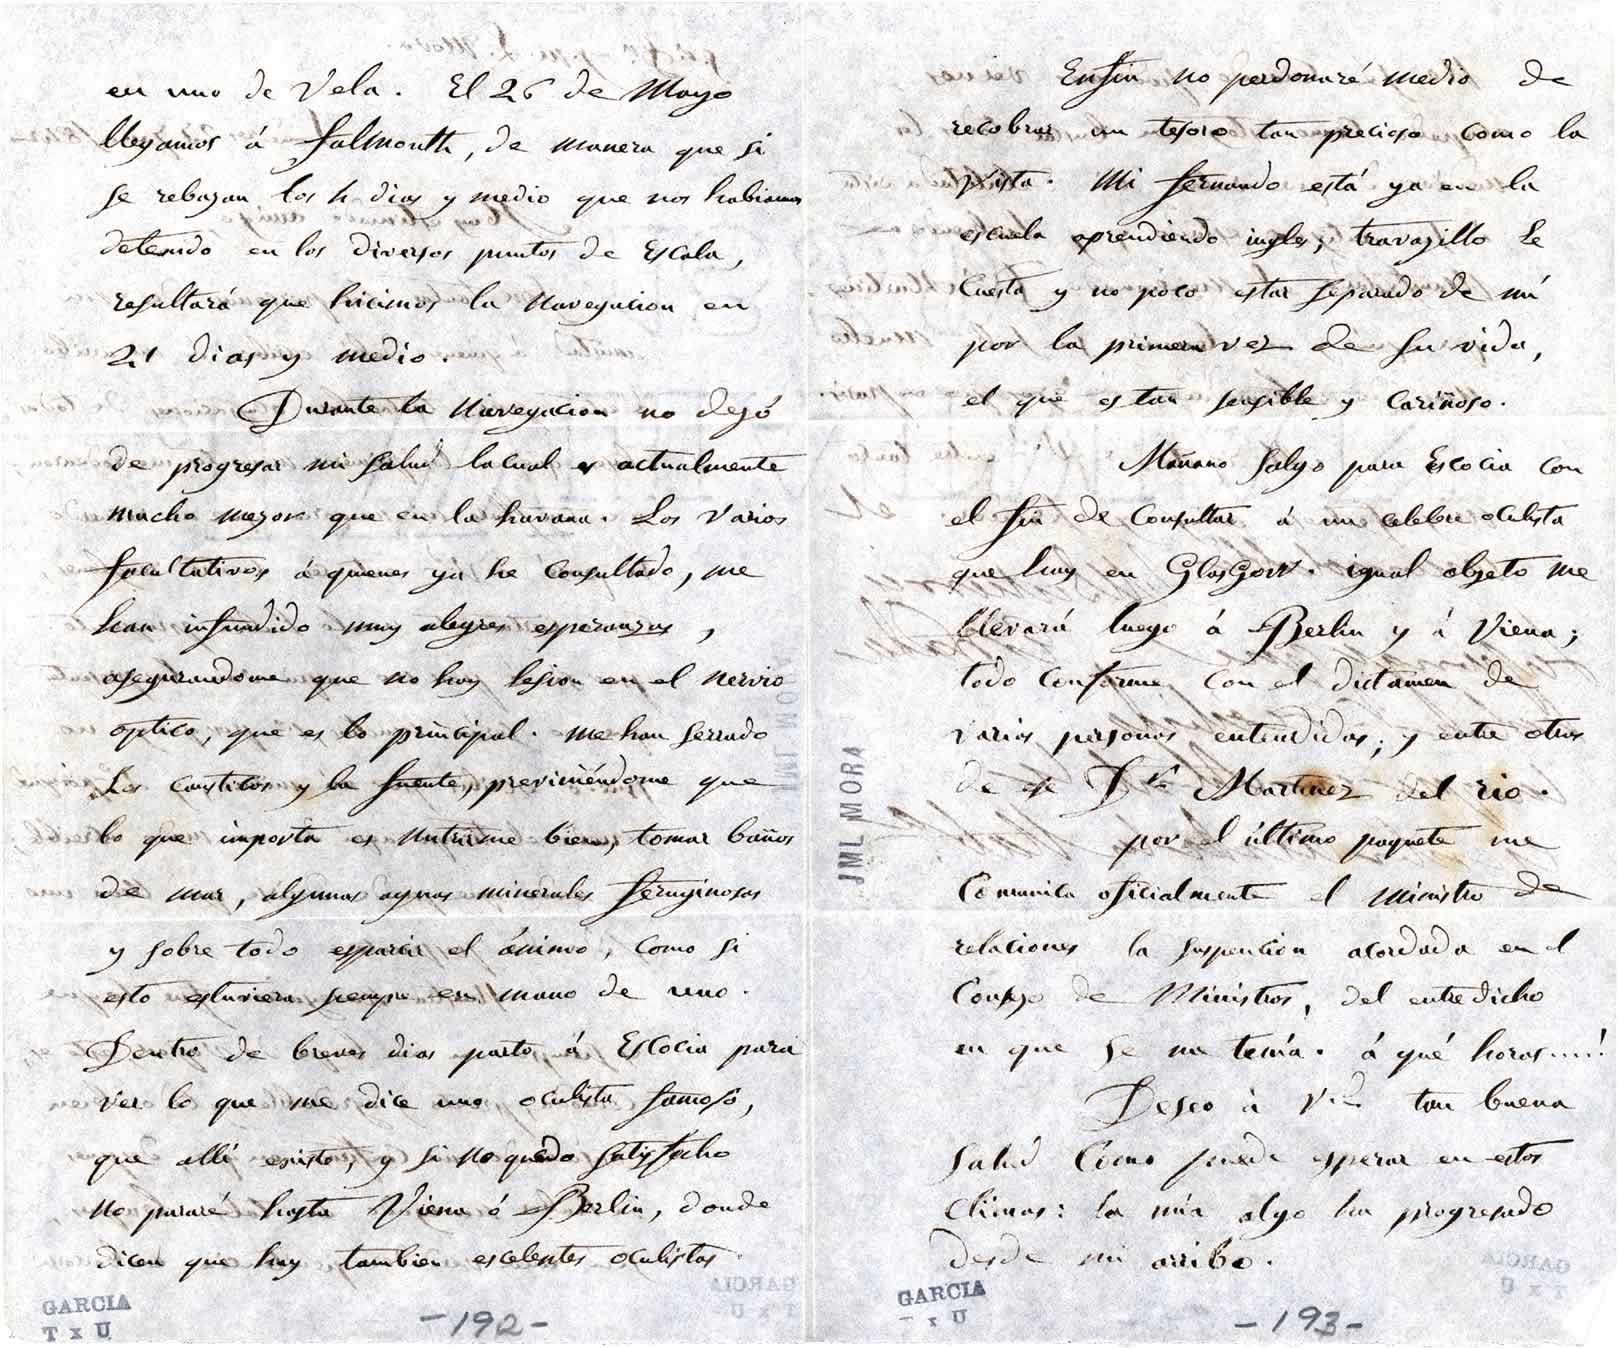 en uno de Vela. El 26 de Mayo
llegamos á falmouth, de manera que si
se rebajan los 4 dias y medio que nos habiamos
detenido en los diversos puntos de Escala,
resultará que hicimos la navegacion en
21 dias y medio.
Durante la navegacion no dejó
de progresar mi salud lacual es actualmente
mucho mejor que en la havana. Los varios
facultativos á quienes ya he consultado, me
han infundido muy alegres esperanzas,
asegurandome que no hay lesion en el nervio
optico, que es lo principal. me han serrado
los causticos y la fuente, previniéndome que
lo que importa es nutrirme bien, tomar baños
de mar, algunas aguas minerales feruginosas
y sobre todo esparcir el ánimo, como si
esto estuviera siempre en mano de uno.
Dentro de breves dias parto á Escocia para
ver lo que me dice uno oculista famoso,
que allí existe, y si no quedo satisfecho
no pararé hasta Viena ó Berlin, donde
dicen que hay tambien escelentes oculistas.
GARCIA
T x U
-192-
Enfin no perdonaré medio de
recobrar un tesoro tan precioso como la
vista. Mi fernando está ya en la
escuela aprendiendo ingles; travajillo le
cuesta y no poco estar separado de mí
por la primera vez de su vida,
el que es tan sensible y cariñoso.
Mañana salgo para Escocia con
el fin de consultar á un celebre oculista
que hay en GlasGow. igual objeto me
llevará luego á Berlin y á Viena;
todo conforme con el dictamen de
varias personas entendidas; y entre otras
de ese Dr Martinez del rio.
por el último paquete me
comunica oficialmente el Ministro de
relaciones la suspencion acordada en el
Consejo de Ministros, del entredicho
en que se me tenía. á qué horas....!
Deseo á Vd tan buena
salud como puede esperar en estos
climas: la mía algo ha progresado
desde mi arribo.
JML MORA
GARCIA
T x U
-193-